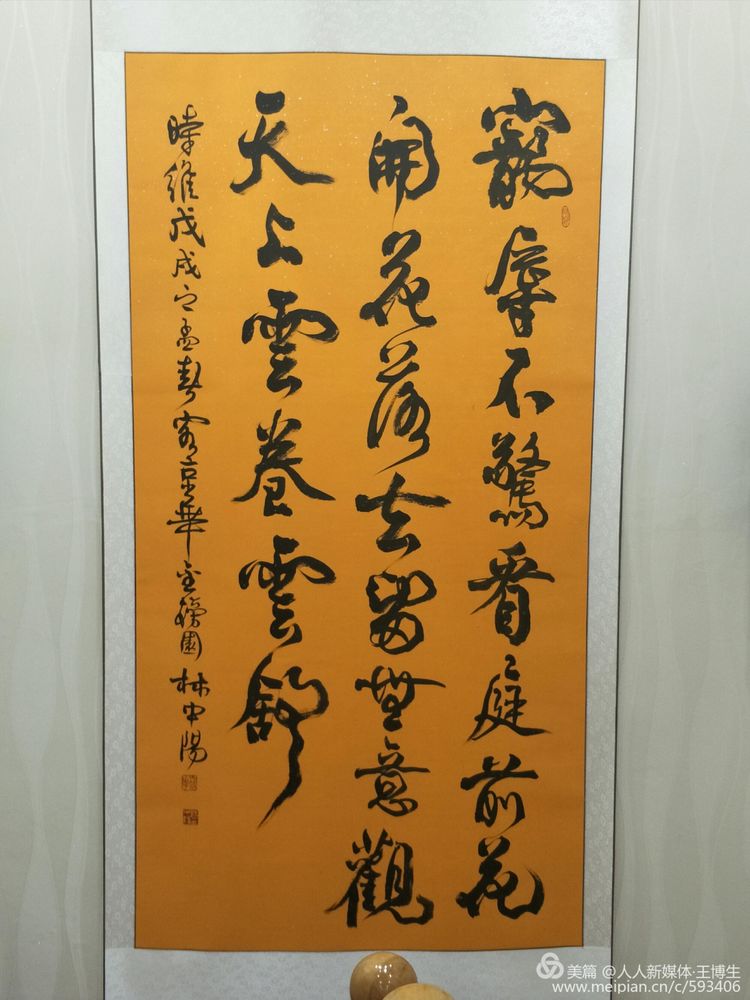 寵辱不驚看庭前花
開花落去留無意觀
天上雲卷雲舒
時維戊戌之孟春客京華金榜園林中陽
美篇 @人人新媒体·王博生
www.meipian.cn/c/593406